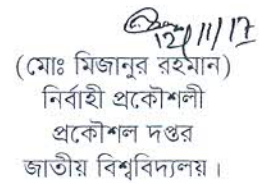 12/11/17
(মোঃ মিজানুর রহমান)
নির্বাহী প্রকৌশলী
প্রকৌশল দপ্তর
জাতীয় বিশ্ববিদ্যালয়।